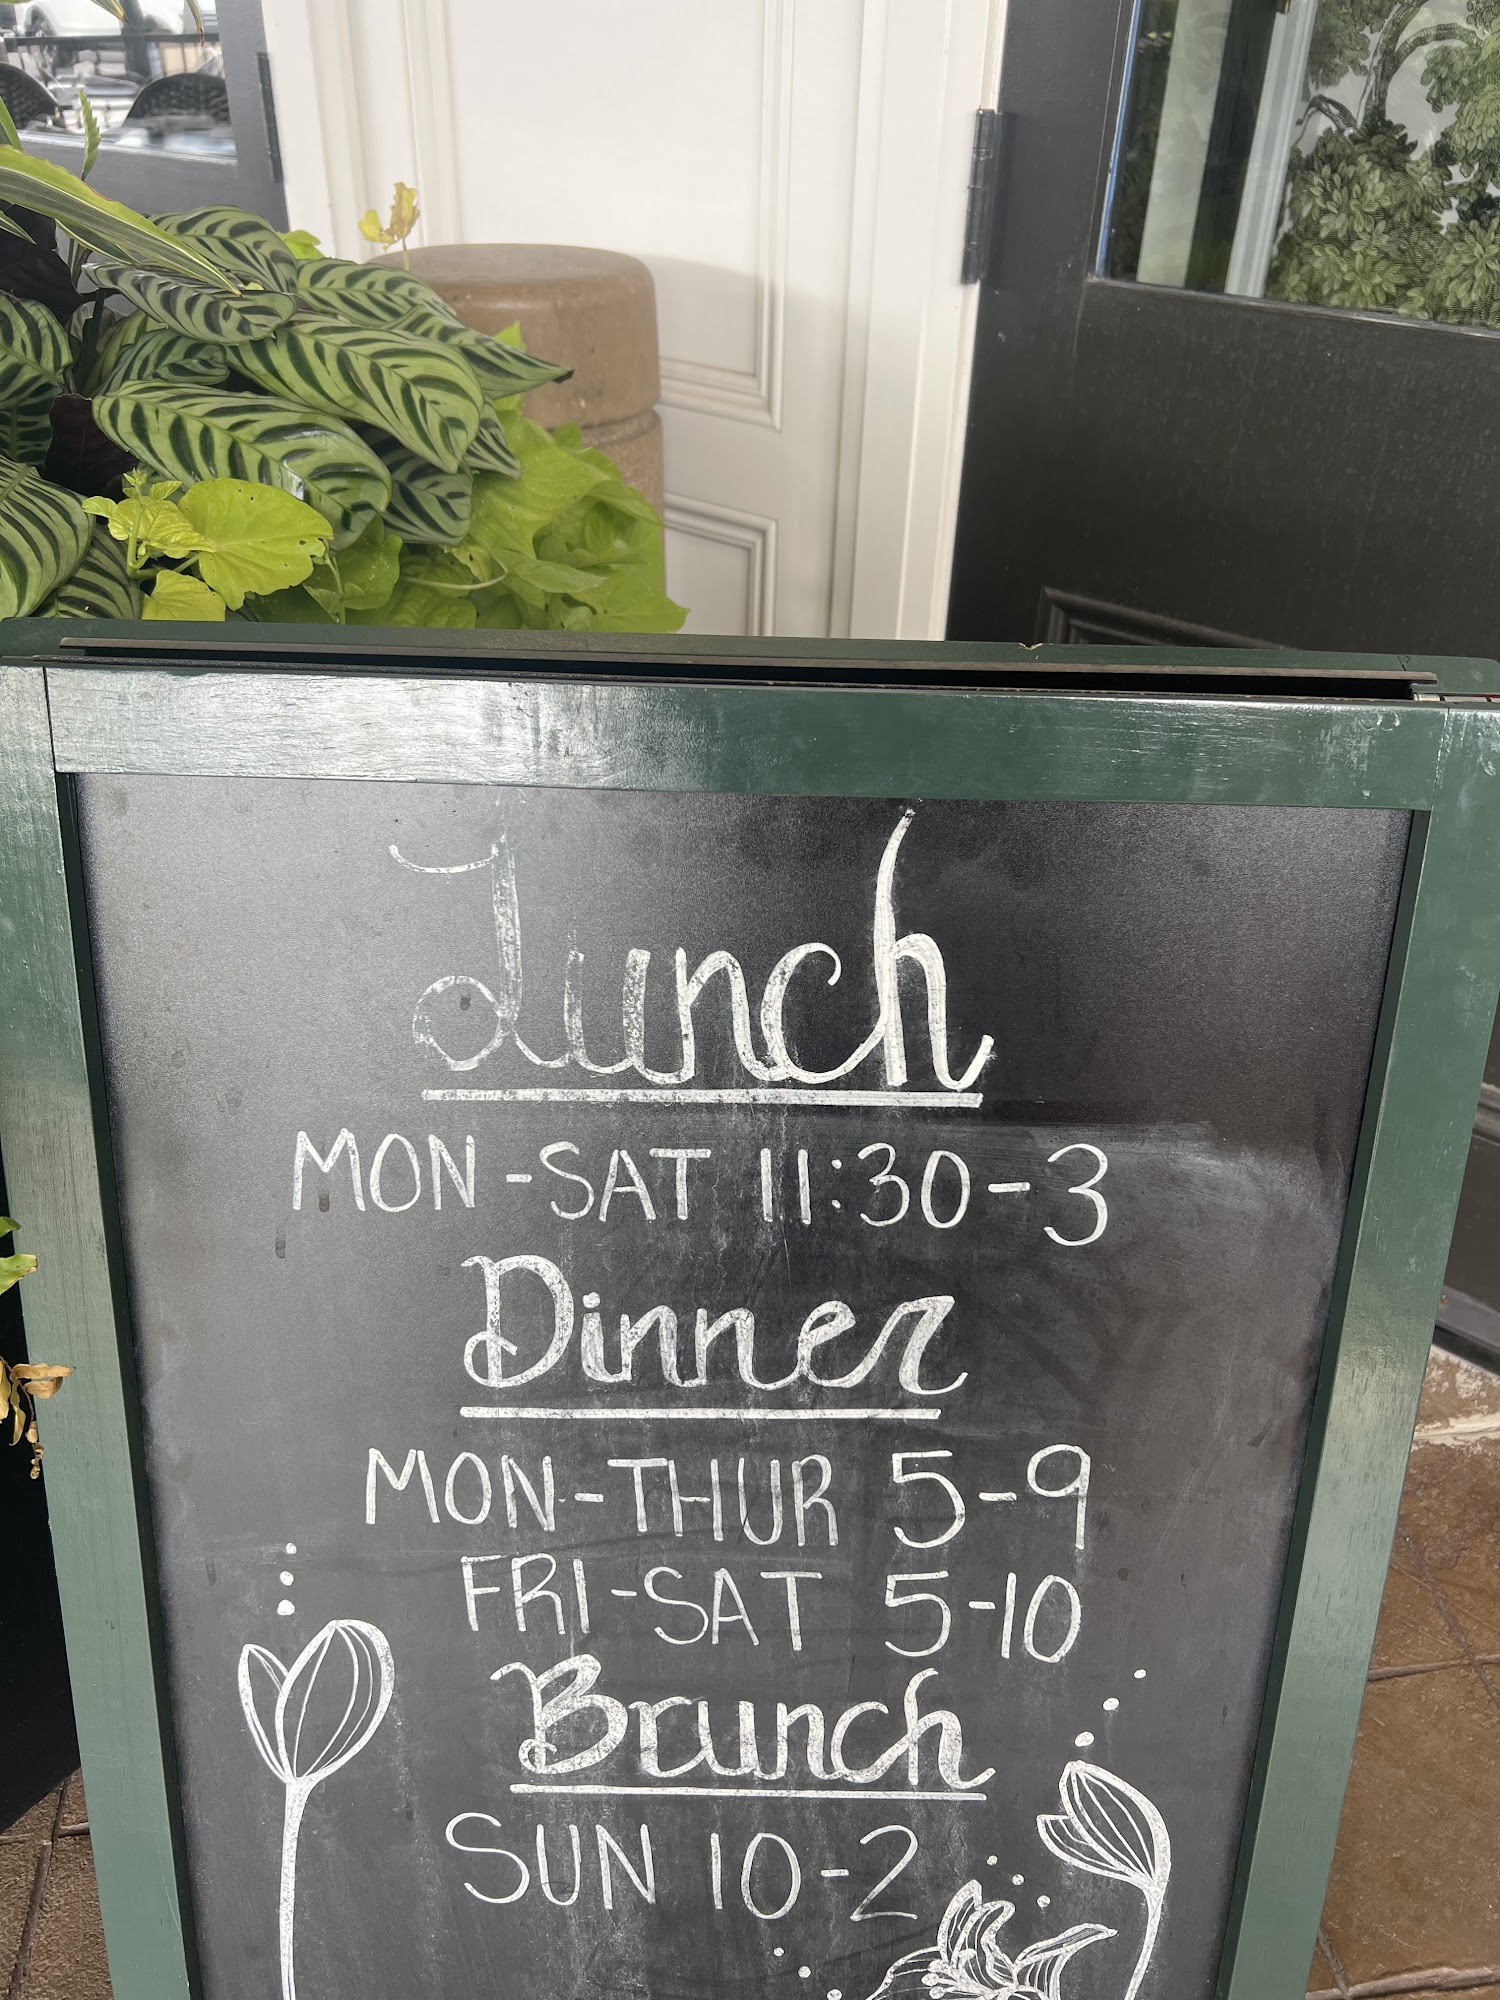 Lunch
MON-SAT 11:30-3
Dinner
MON-THUR 5-9
FRI-SAT 5-10
Brunch
SUN 10-2